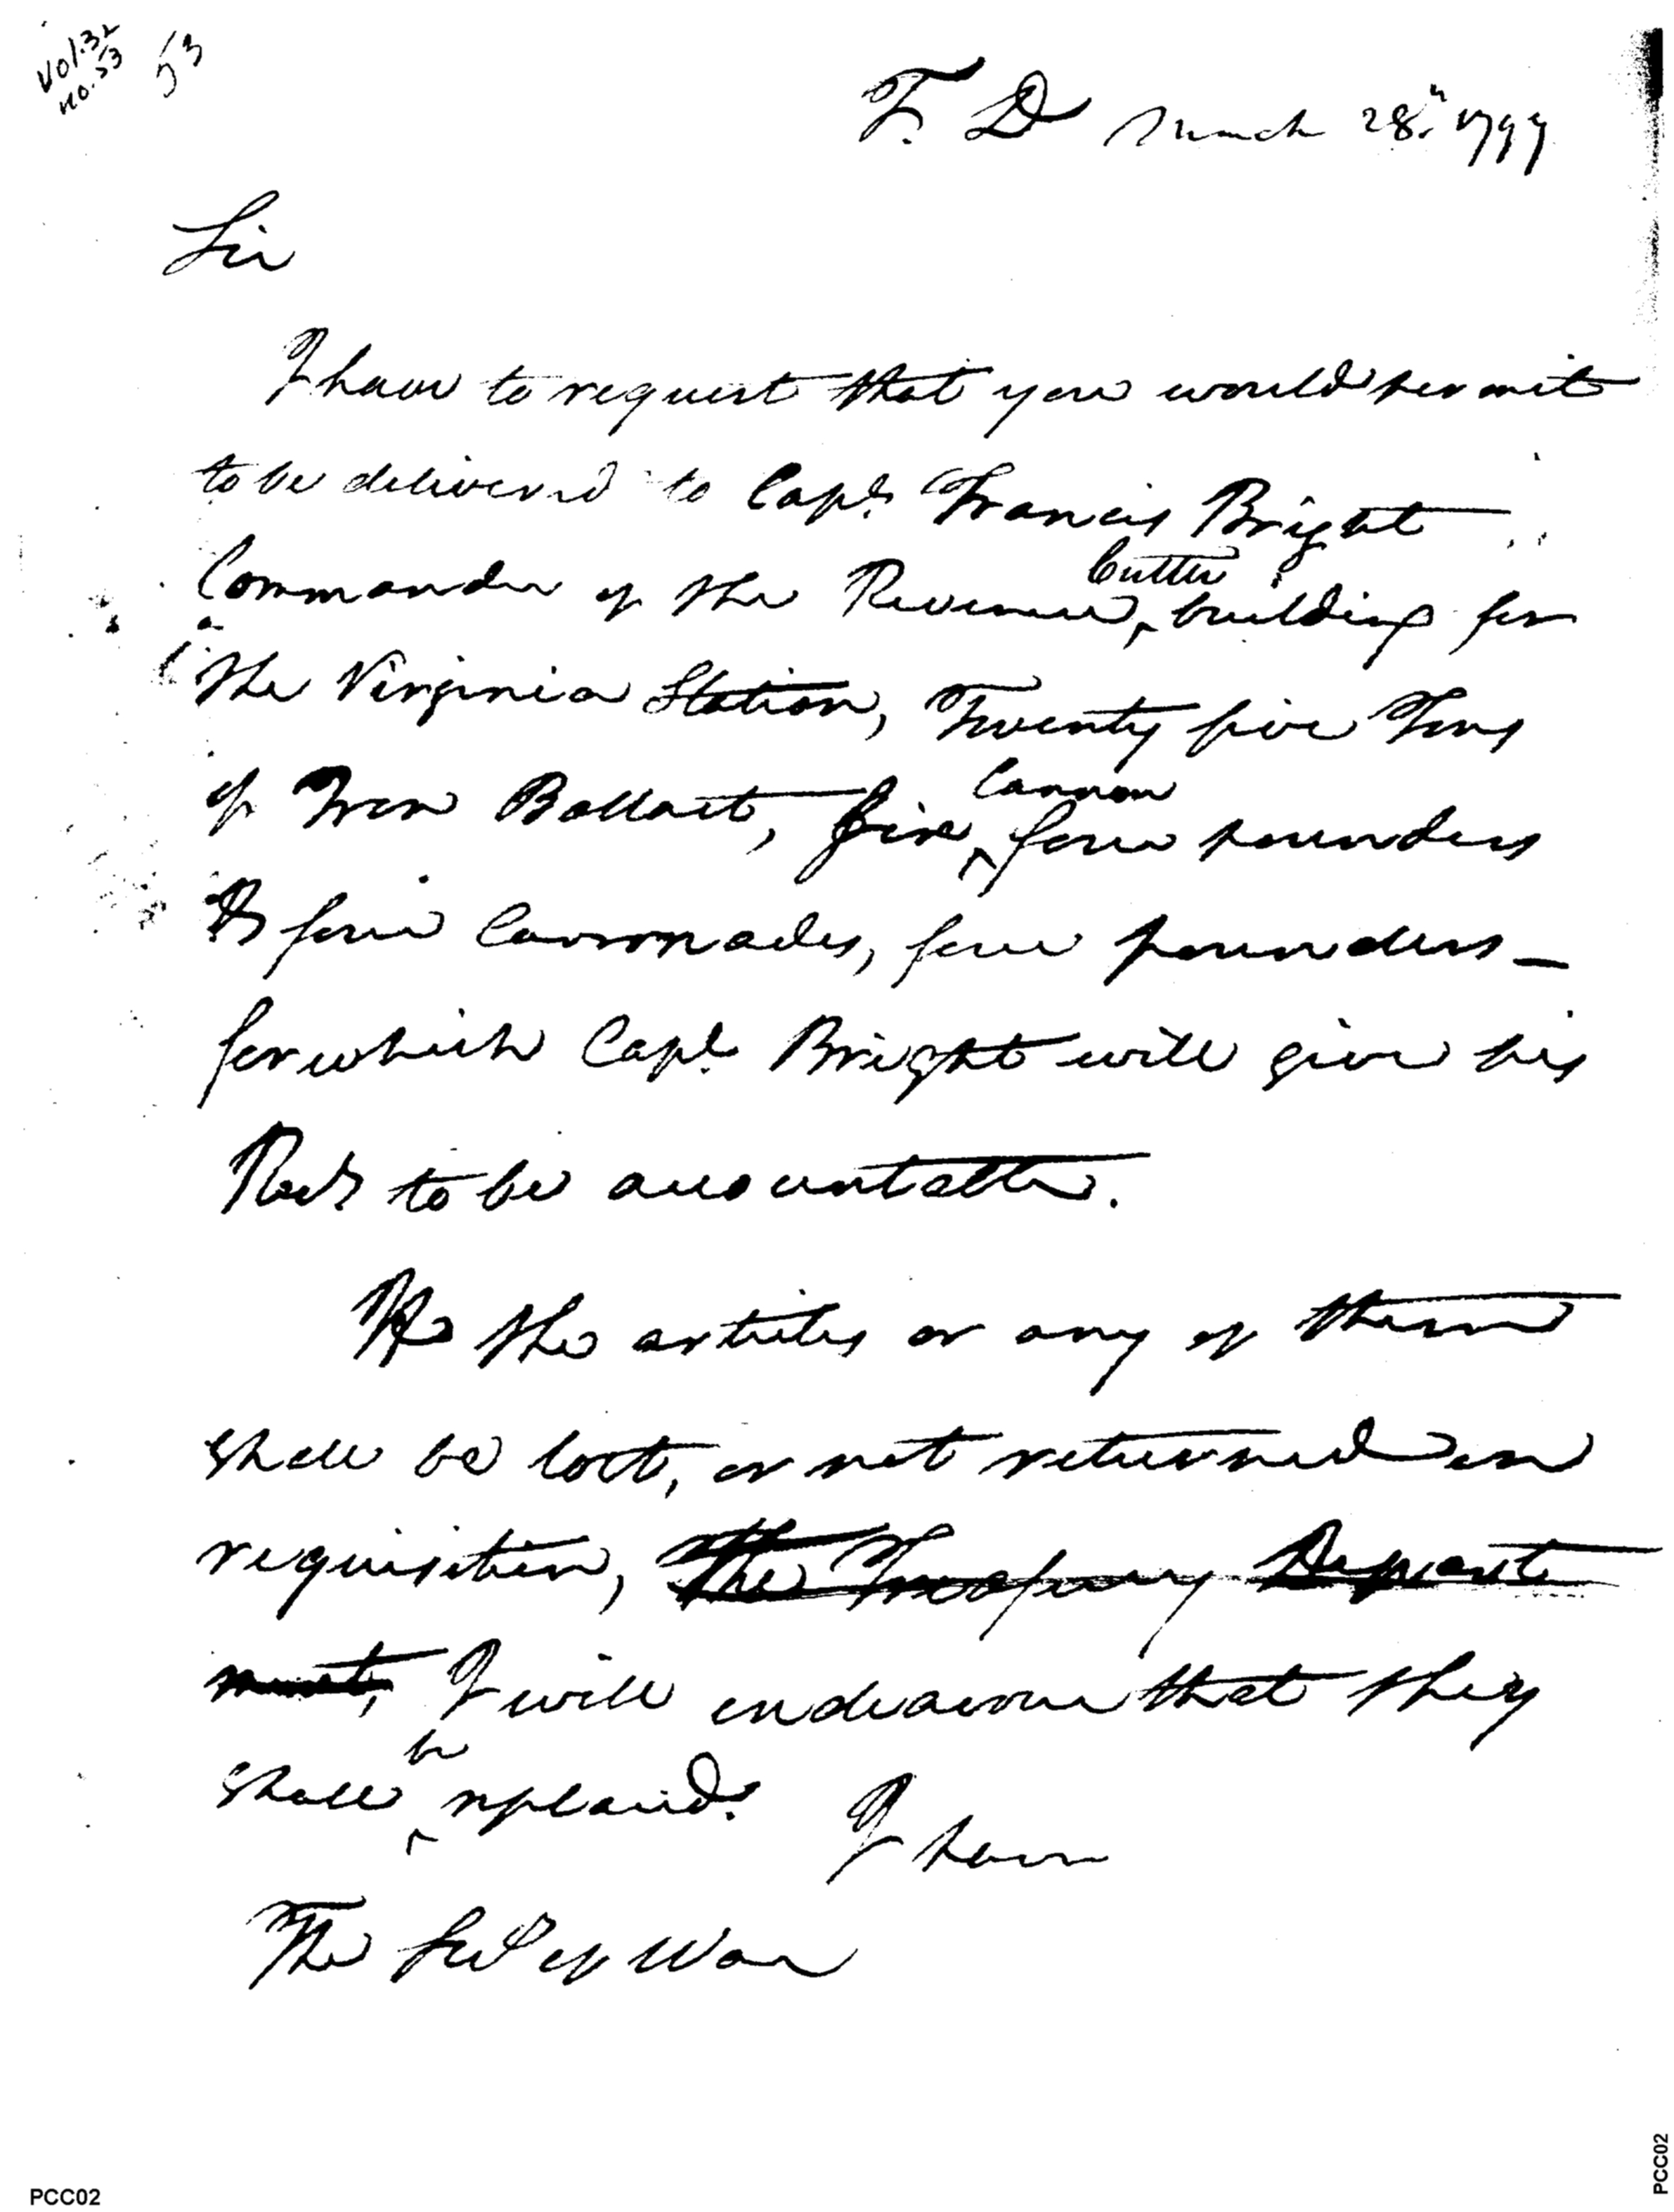 Vol. 32
no. 53
53
T. D March 28th 1799
Sir
I have to request that you would permit
to be delivered to Capt. Francis Bright
Commander of the Revenue Cutter, building for
the Virginia Station, Twenty five Tons
of Iron Ballast, five Cannon four pounders
& four Carronades, four pounders —
for which Capt. Bright will give his
Rect. to be accountable.
If the articles or any of them
shall be lost, or not returned on
requisition, the Treasury Depart
ment, I will endeavour that they
shall be replaced. I have
The Secy of War
PCC02
PCC02